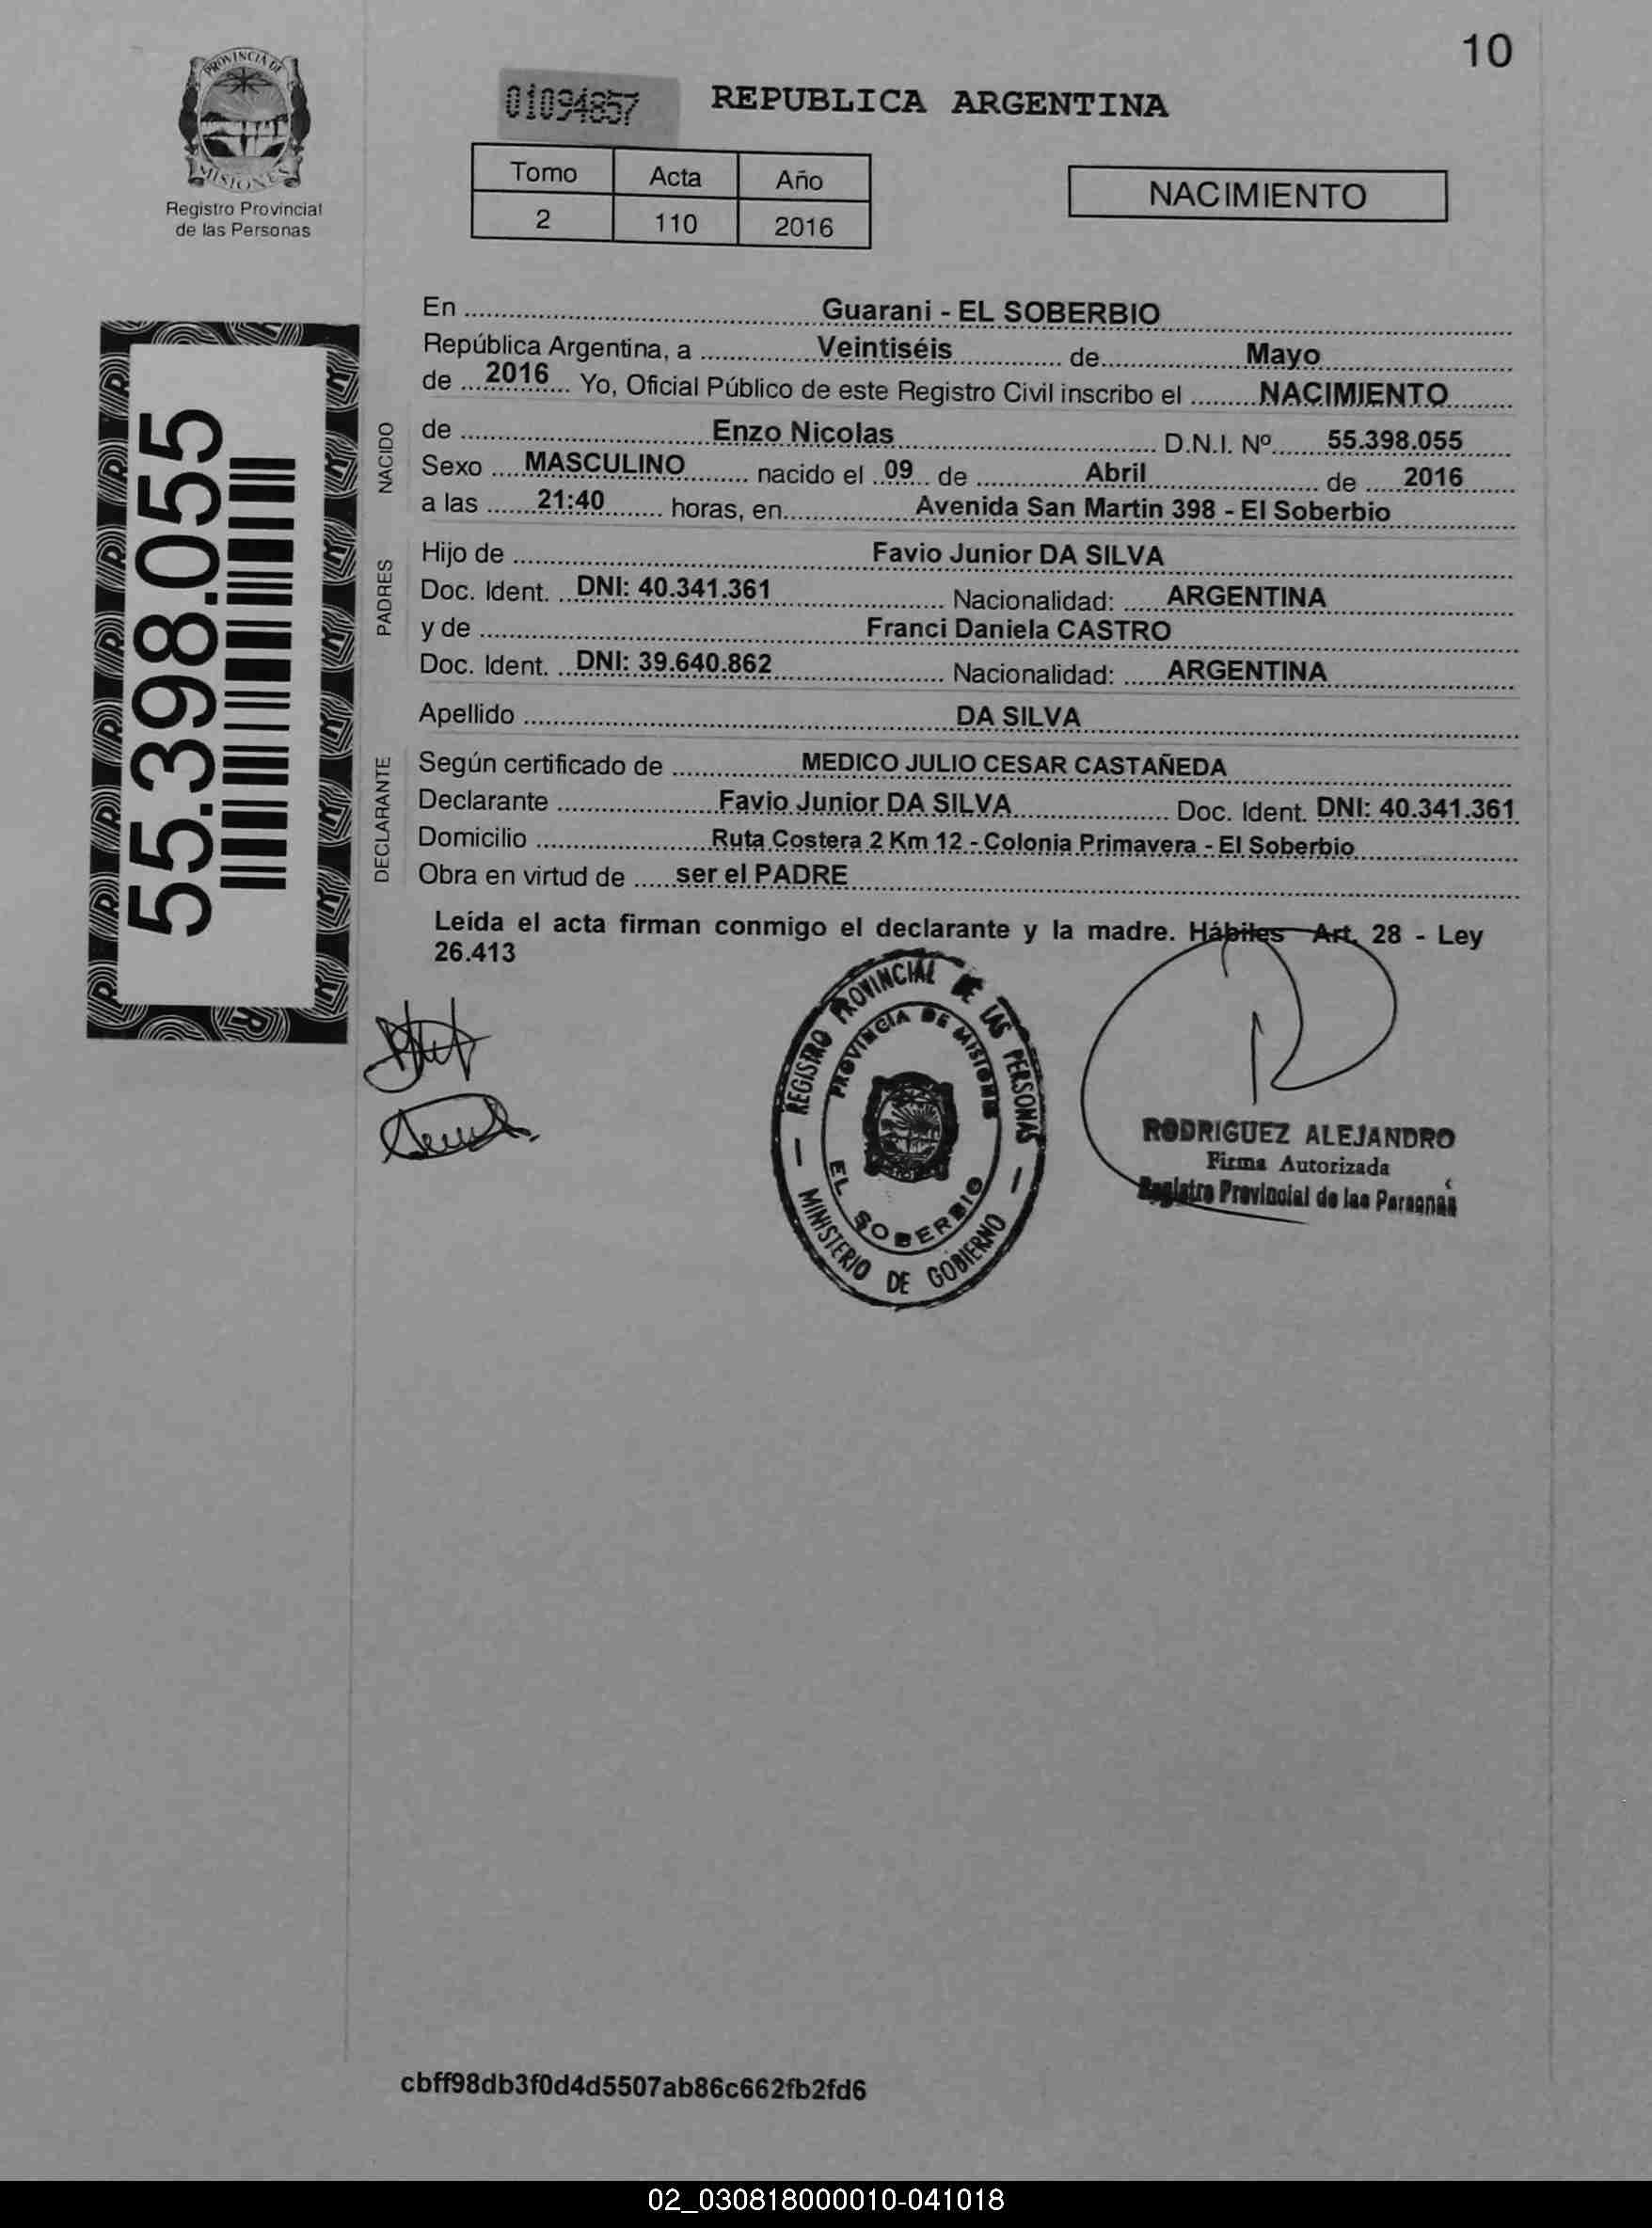 10
PROVINCIA DE
MISIONES
Registro Provincial
de las Personas
01094857
REPUBLICA ARGENTINA
Tomo Acta Año
2 110 2016
NACIMIENTO
55.398.055
En ........ Guarani - EL SOBERBIO ........
República Argentina, a ........ Veintiséis ........ de ........ Mayo ........
de ... 2016 ... Yo, Oficial Público de este Registro Civil inscribo el ........ NACIMIENTO ........
NACIDO
de ........ Enzo Nicolas ........ D.N.I. Nº ........ 55.398.055 ........
Sexo .... MASCULINO ........ nacido el .. 09 .. de ........ Abril ........ de ..... 2016 ........
a las ....... 21:40 ........ horas, en ........ Avenida San Martin 398 - El Soberbio ........
PADRES
Hijo de ........ Favio Junior DA SILVA ........
Doc. Ident. .. DNI: 40.341.361 ........ Nacionalidad: ...... ARGENTINA ........
y de ........ Franci Daniela CASTRO ........
Doc. Ident. ... DNI: 39.640.862 ........ Nacionalidad: ...... ARGENTINA ........
Apellido ........ DA SILVA ........
DECLARANTE
Según certificado de ........ MEDICO JULIO CESAR CASTAÑEDA ........
Declarante ........ Favio Junior DA SILVA ........ Doc. Ident. DNI: 40.341.361
Domicilio ........ Ruta Costera 2 Km 12 - Colonia Primavera - El Soberbio ........
Obra en virtud de ...... ser el PADRE ........
Leída el acta firman conmigo el declarante y la madre. Hábiles Art. 28 - Ley
26.413
REGISTRO PROVINCIAL DE LAS PERSONAS
PROVINCIA DE MISIONES
EL SOBERBIO
MINISTERIO DE GOBIERNO
RODRIGUEZ ALEJANDRO
Firma Autorizada
Registro Provincial de las Personas
cbff98db3f0d4d5507ab86c662fb2fd6
02_030818000010-041018